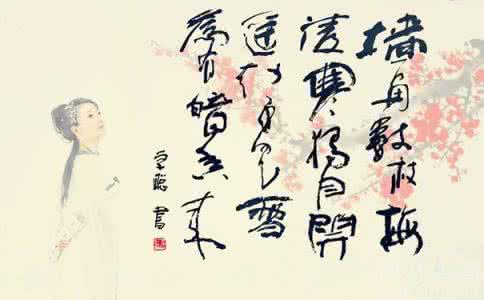 墙角數枝梅
凌寒獨自開
遥知不是雪
為有暗香来
書